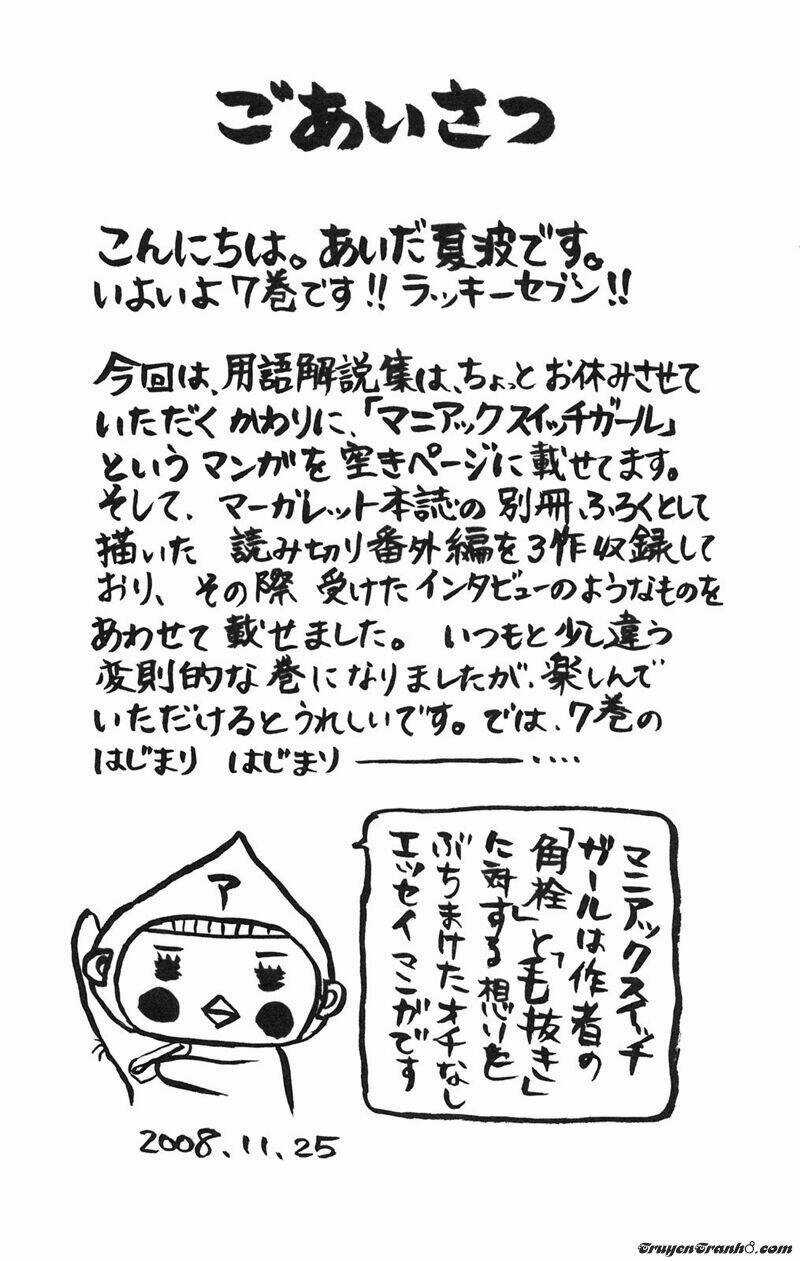 ごあいさつ
こんにちは。あいだ夏波です。
いよいよ7巻です!! ラッキーセブン!!
今回は、用語解説集は、ちょっとお休みさせて
いただくかわりに、「マニアックスイッチガール」
というマンガを空きページに載せてます。
そして、マーガレット本誌の別冊ふろくとして
描いた 読み切り番外編を3作収録して
おり、その際 受けたインタビューのようなものを
あわせて載せました。 いつもと少し違う
変則的な巻になりましたが、楽しんで
いただけるとうれしいです。では、7巻の
はじまり はじまり ――――‥‥
マニアックスイッチ
ガールは作者の
「角栓」と「毛抜き」
に対する想いを
ぶちまけたオチなし
エッセイマンガです
ア
2008.11.25
TruyenTranh8.com